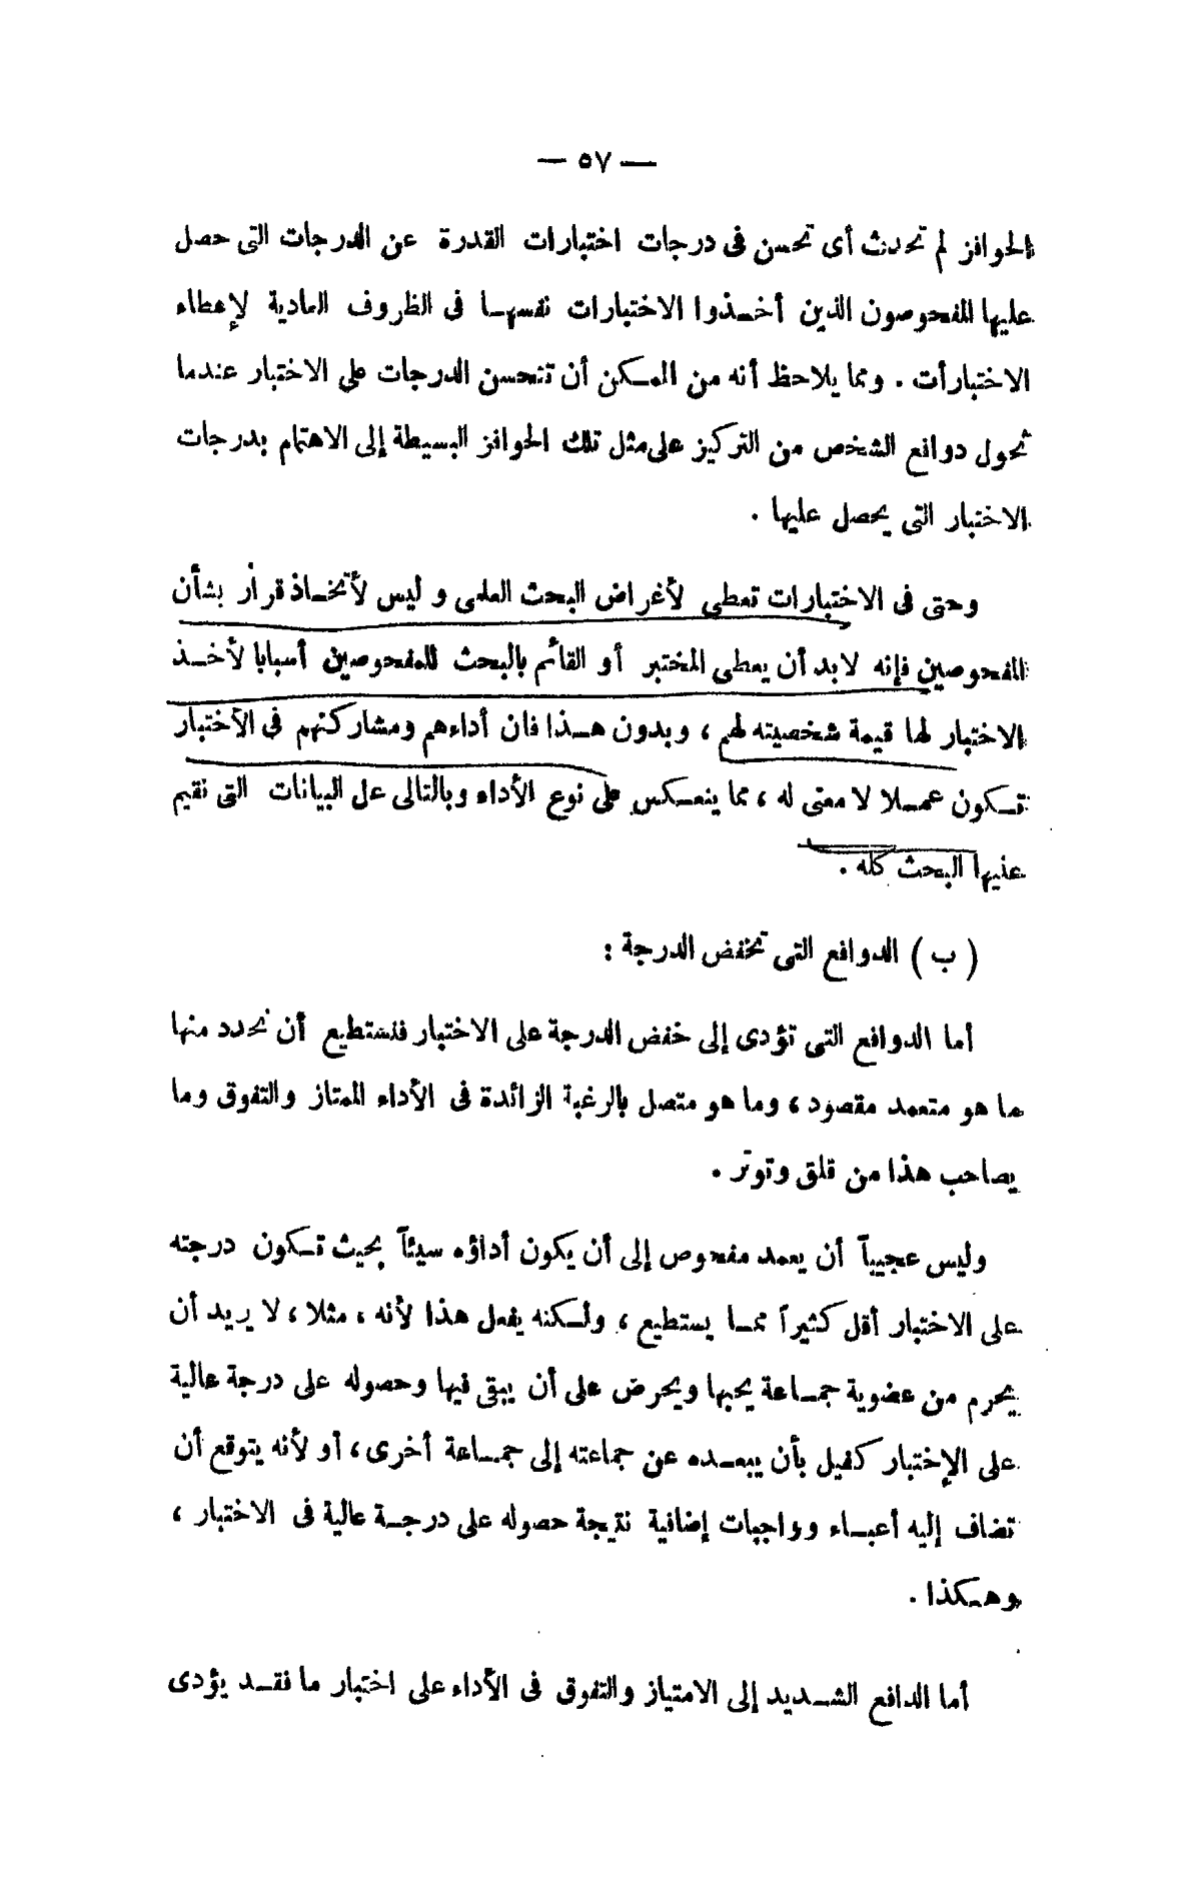 — ٥٧ —
الحوافز لم تحدث أى تحسن فى درجات اختبارات القدرة عن الدرجات التى حصل
عليها المفحوصون الذين أخذوا الاختبارات نفسها فى الظروف العادية لإعطاء
الاختبارأت . ومما يلاحظ أنه من الممكن أن تتحسن الدرجات على الاختبار عندما
تحول دوافع الشخص من التركيز على مثل تلك الحوافز البسيطة إلى الاهتمام بدرجات
الاختبار التى يحصل عليها .
وحتى فى الاختبارات تعطى لأغراض البحث العلمى و ليس لأتخاذ قرار بشأن
المفحوصين فإنه لابد أن يعطى المختبر أو القائم بالبحث للمفحوصين أسبابا لأخذ
الاختبار لها قيمة شخصيته لهم ، وبدون هذا فان أداءهم ومشاركتهم فى الأختبار
تكون عملا لا معنى له ، مما ينعكس على نوع الأداء وبالتالى على البيانات التى نقيم
عليها البحث كله .
( ب ) الدوافع التى تخفض الدرجة :
أما الدوافع التى تؤدى إلى خفض الدرجة على الاختبار فنستطيع أن نحدد منها
ما هو متعمد مقصود ، وما هو متصل بالرغبة الزائدة فى الأداء الممتاز والتفوق وما
يصاحب هذا من قلق وتوتر .
وليس عجيباً أن يعمد مفحوص إلى أن يكون أداؤه سيئاً بحيث تكون درجته
على الاختبار أقل كثيراً مما يستطيع ، ولكنه يفعل هذا لأنه ، مثلا ، لا يريد أن
يحرم من عضوية جماعة يحبها ويحرض على أن يبقى فيها وحصوله على درجة عالية
على الإختبار كفيل بأن يبعده عن جماعته إلى جماعة أخرى ، أو لأنه يتوقع أن
تضاف إليه أعباء وواجبات إضافية نتيجة حصوله على درجة عالية فى الاختبار ،
وهكذا .
أما الدافع الشديد إلى الامتياز والتفوق فى الأداء على اختبار ما فقد يؤدى